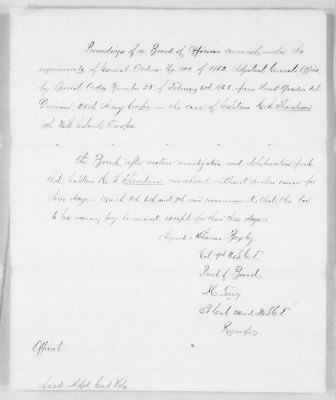 Proceedings of a Board of Officers convened under the
requirements of General Orders No. 100 of 1862, Adjutant General's Office,
by Special Orders Number 35 of February 10th 1865, from Head Quarters 1st
Division 25th Army Corps, in the case of Captain
9th U.S. Colored Troops.
The Board, after mature investigation and deliberation find
that Captain was absent without proper cause for
three days March 5th, 6th and 7th and recommend that
to his receiving pay be removed except for these three days.
Signed, Thomas Bayley
Col 9th U.S.C.T.
Prest of Board
M. Terry
2d Lieut U.S.C.T.
Recorder
Official.
Asst Adjt Genl Vols